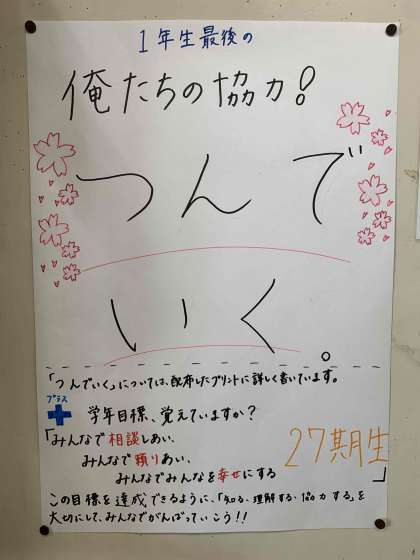 1年生最後の
俺たちの協力!
つんで
いく。
「つんでいく」については、配布したプリントに詳しく書いています。
プラス
学年目標、覚えていますか?
「みんなで相談しあい、
みんなで頼りあい、
みんなでみんなを幸せにする」
27期生
この目標を達成できるように、「知る、理解する、協力する」を
大切にして、みんなでがんばっていこう!!